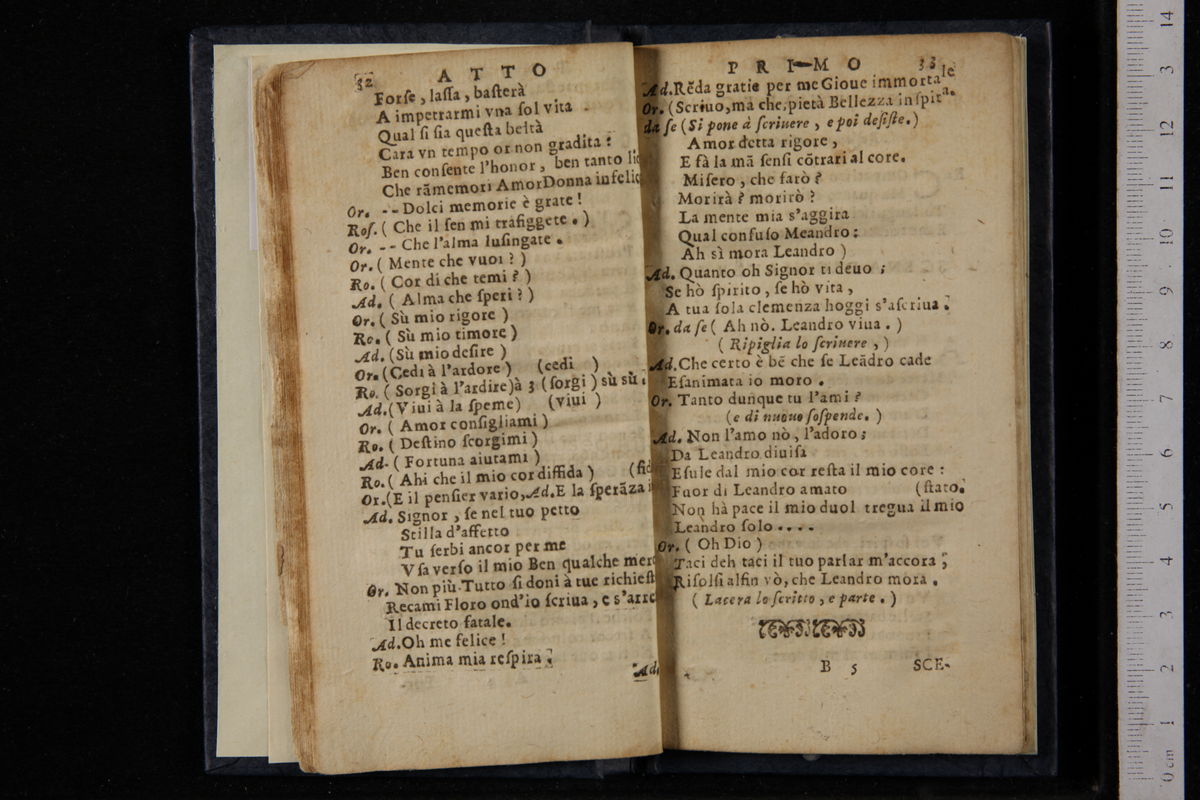 32 ATTO
Forſe, laſſa, baſterà
A impetrarmi vna ſol vita
Qual ſi ſia queſta beltà
Cara vn tempo or non gradita:
Ben conſente l'honor, ben tanto
Che rãmemori AmorDonna infelic
Or. -- Dolci memorie è grate!
Roſ. ( Che il ſen mi trafiggete. )
Or. -- Che l'alma luſingate.
Or. ( Mente che vuoi? )
Ro. ( Cor di che temi? )
Ad. ( Alma che ſperi? )
Or. ( Sù mio rigore )
Ro. ( Sù mio timore )
Ad. (Sù mio deſire )
Or. (Cedi à l'ardore ) (cedi )
Ro. ( Sorgi à l'ardire)à 3 (ſorgi ) sù sù.
Ad. (Viui à la ſpeme) (viui )
Or. ( Amor conſigliami )
Ro. ( Deſtino ſcorgimi )
Ad. ( Fortuna aiutami )
Ro. ( Ahi che il mio cor diffida ) (fid
Or. (E il penſier vario, Ad. E la ſperãza
Ad. Signor, ſe nel tuo petto
Stilla d'affetto
Tu ſerbi ancor per me
Vſa verſo il mio Ben qualche merc
Or. Non più. Tutto ſi doni à tue richieſt
Recami Floro ond'io ſcriua, e s'arre
Il decreto fatale.
Ad. Oh me felice!
Ro. Anima mia reſpira.
Ad.
PRIMO 33
Ad. Rẽda gratie per me Gioue immortale
Or. (Scriuo, ma che, pietà Bellezza inſpira.
da ſe (Si pone à ſcriuere, e poi deſiſte.)
Amor detta rigore,
E fà la mã ſenſi cõtrari al core.
Miſero, che farò?
Morirà? morirò?
La mente mia s'aggira
Qual confuſo Meandro:
Ah sì mora Leandro )
Ad. Quanto oh Signor ti deuo;
Se hò ſpirito, ſe hò vita,
A tua ſola clemenza hoggi s'aſcriua.
Or. da ſe ( Ah nò. Leandro viua. )
( Ripiglia lo ſcriuere, )
Ad. Che certo è bẽ che ſe Leãdro cade
Eſanimata io moro.
Or. Tanto dunque tu l'ami?
(e di nuouo ſoſpende. )
Ad. Non l'amo nò, l'adoro;
Da Leandro diuiſa
Eſule dal mio cor reſta il mio core:
Fuor di Leandro amato (ſtato.
Non hà pace il mio duol tregua il mio
Leandro ſolo....
Or. ( Oh Dio )
Taci deh taci il tuo parlar m'accora;
Riſolſi alfin vò, che Leandro mora.
( Lacera lo ſcritto, e parte. )
B 5 SCE-
0 cm 1 2 3 4 5 6 7 8 9 10 11 12 3 14